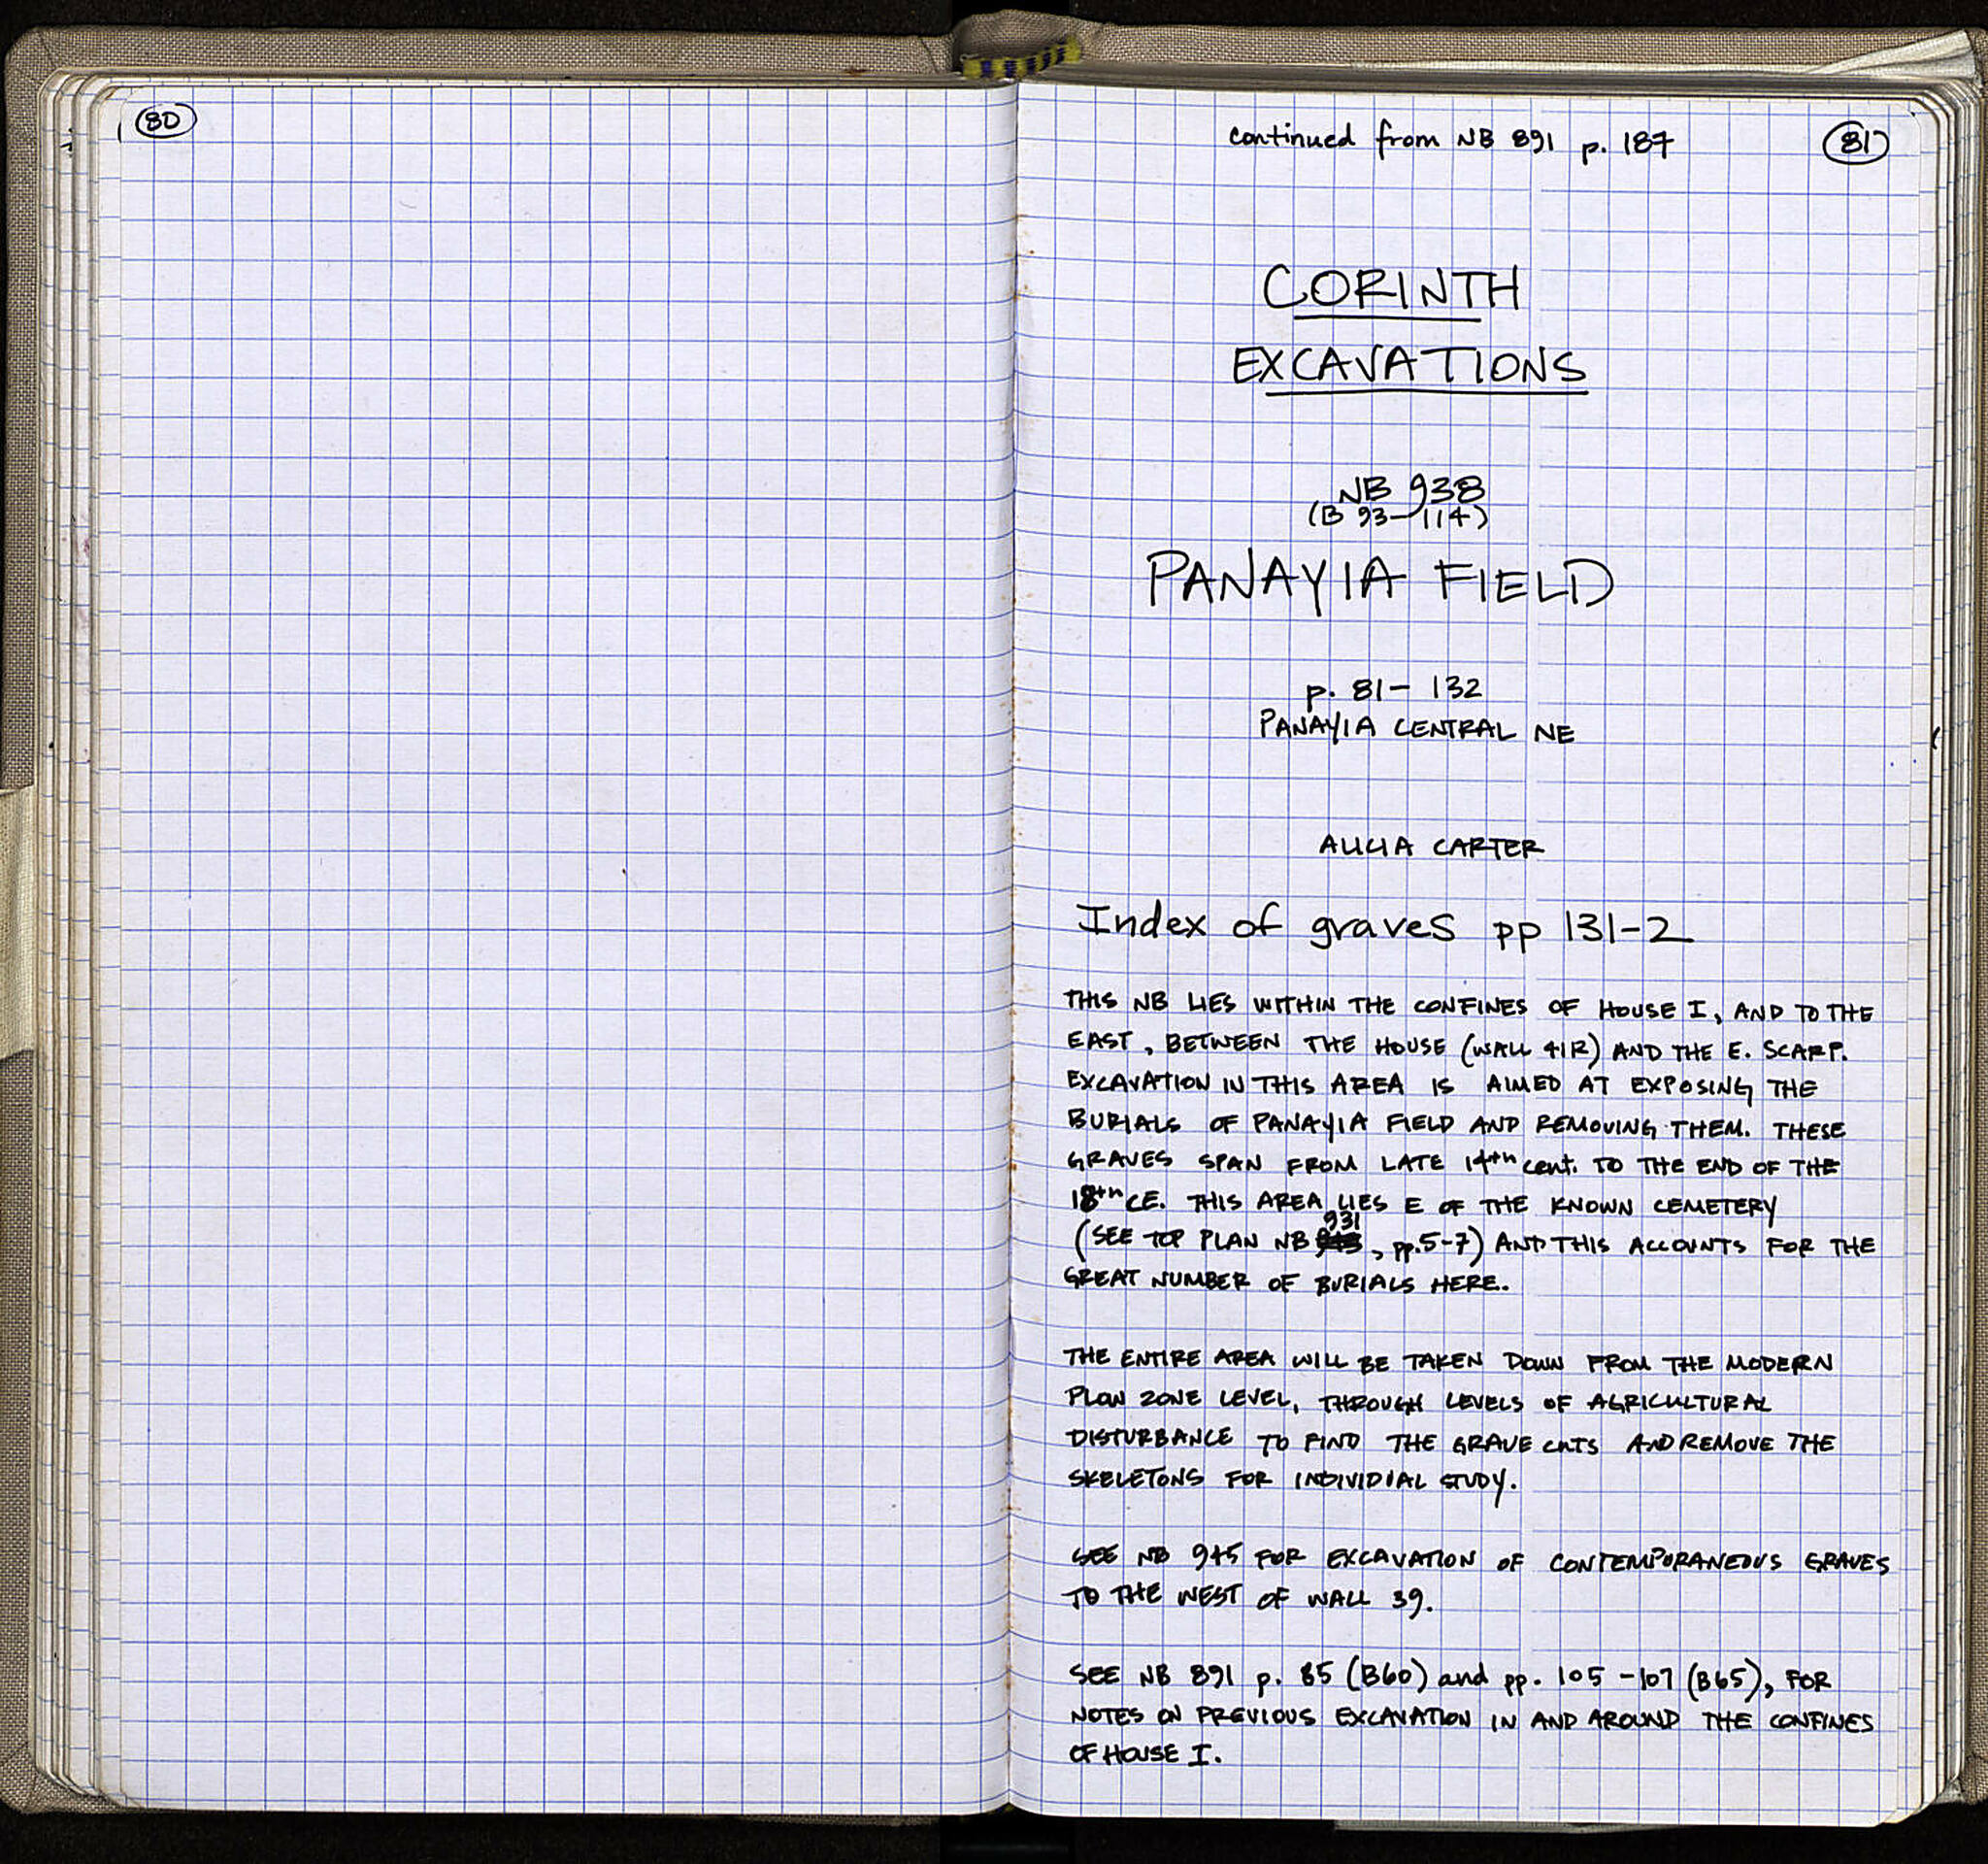 80
continued from NB 891 p. 187
81
CORINTH
EXCAVATIONS
NB 938
(B 93-114)
PANAYIA FIELD
p. 81- 132
PANAYIA CENTRAL NE
ALICIA CARTER
Index of graves pp 131-2
THIS NB LIES WITHIN THE CONFINES OF HOUSE I, AND TO THE
EAST, BETWEEN THE HOUSE (WALL 41R) AND THE E. SCARP.
EXCAVATION IN THIS AREA IS AIMED AT EXPOSING THE
BURIALS OF PANAYIA FIELD AND REMOVING THEM. THESE
GRAVES SPAN FROM LATE 14th cent. TO THE END OF THE
18th CE. THIS AREA LIES E OF THE KNOWN CEMETERY
931
(SEE TOP PLAN NB , pp.5-7) AND THIS ACCOUNTS FOR THE
GREAT NUMBER OF BURIALS HERE.
THE ENTIRE AREA WILL BE TAKEN DOWN FROM THE MODERN
PLOW ZONE LEVEL, THROUGH LEVELS OF AGRICULTURAL
DISTURBANCE TO FIND THE GRAVE CUTS AND REMOVE THE
SKELETONS FOR INDIVIDIAL STUDY.
SEE NB 945 FOR EXCAVATION OF CONTEMPORANEOUS GRAVES
TO THE WEST OF WALL 39.
SEE NB 891 p. 85 (B60) and pp. 105-107 (B65), FOR
NOTES ON PREVIOUS EXCAVATION IN AND AROUND THE CONFINES
OF HOUSE I.